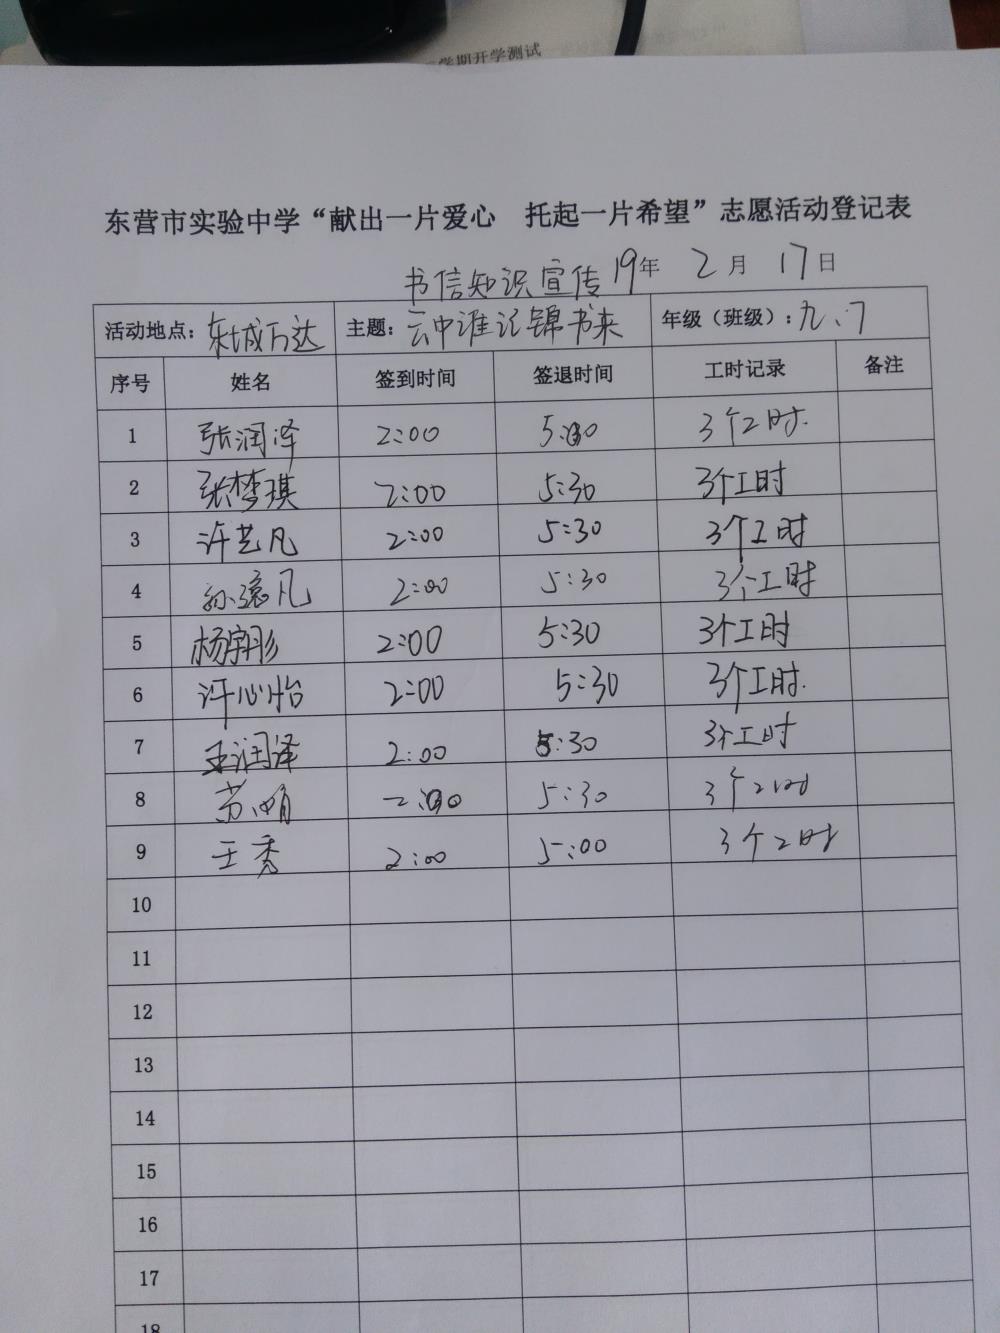 学期开学测试
东营市实验中学“献出一片爱心 托起一片希望”志愿活动登记表
书信知识宣传 19年 2月 17日
活动地点：东城万达 主题：云中谁记锦书来 年级（班级）：九.7
序号 姓名 签到时间 签退时间 工时记录 备注
1 张润泽 2:00 5:00 3个工时.
2 张梦琪 2:00 5:30 3个工时
3 许艺凡 2:00 5:30 3个工时
4 孙凡 2:00 5:30 3个工时
5 杨宇彤 2:00 5:30 3个工时
6 许心怡 2:00 5:30 3个工时.
7 王润泽 2:00 5:30 3个工时
8 苏 2:00 5:30 3个工时
9 王秀 2:00 5:00 3个工时
10
11
12
13
14
15
16
17
18